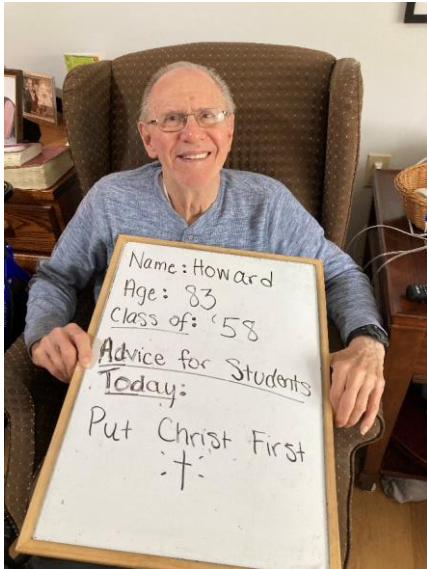 Name: Howard
Age: 83
Class of: '58
Advice for Students
Today:
Put Christ First